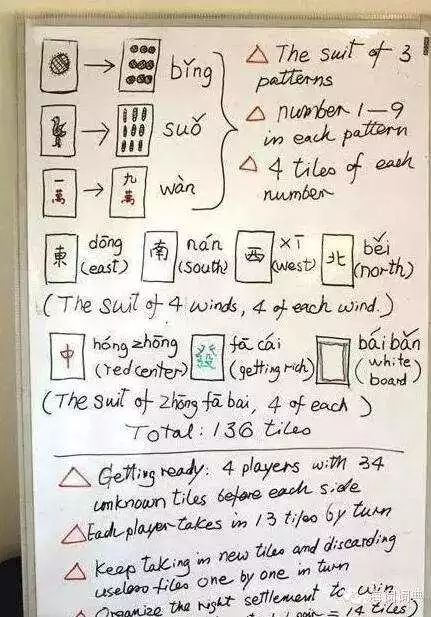 bǐng
suǒ
一萬
九萬
wàn
△ The suit of 3
patterns
△ number 1—9
in each pattern
△ 4 tiles of each
number
東 dōng
(east)
南 nán
(south)
西 xī
(west)
北 běi
(north)
(The suit of 4 winds, 4 of each wind.)
中 hóng zhōng
(red center)
發 fā cái
(getting rich)
bái bǎn
(white
board)
(The suit of zhōng fā bai, 4 of each)
Total: 136 tiles
△ Getting ready: 4 players with 34
unknown tiles before each side
△ Each player takes in 13 tiles by turn
△ Keep taking in new tiles and discarding
useless tiles one by one in turn
△ Organize the right settlement to win
= 14 tiles)